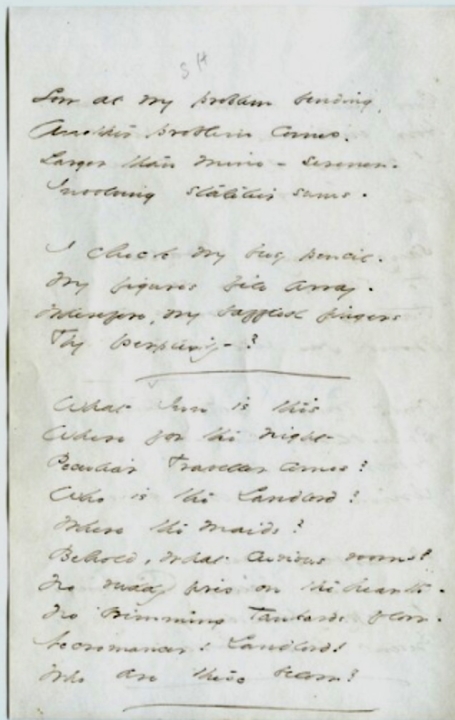 S H
Low at my problem bending,
Another problem comes.
Larger than mine - Serener.
Involving statelier sums.
I check my busy pencil.
My figures file away.
Wherefore, my baffled fingers
Thy perplexity - ?
What Inn is this
Where for the night
Peculiar Traveller comes?
Who is the Landlord?
Where the maids?
Behold, what curious rooms!
No ruddy fires on the hearth.
No brimming Tankards flow.
Necromancer! Landlord!
Who are these below?